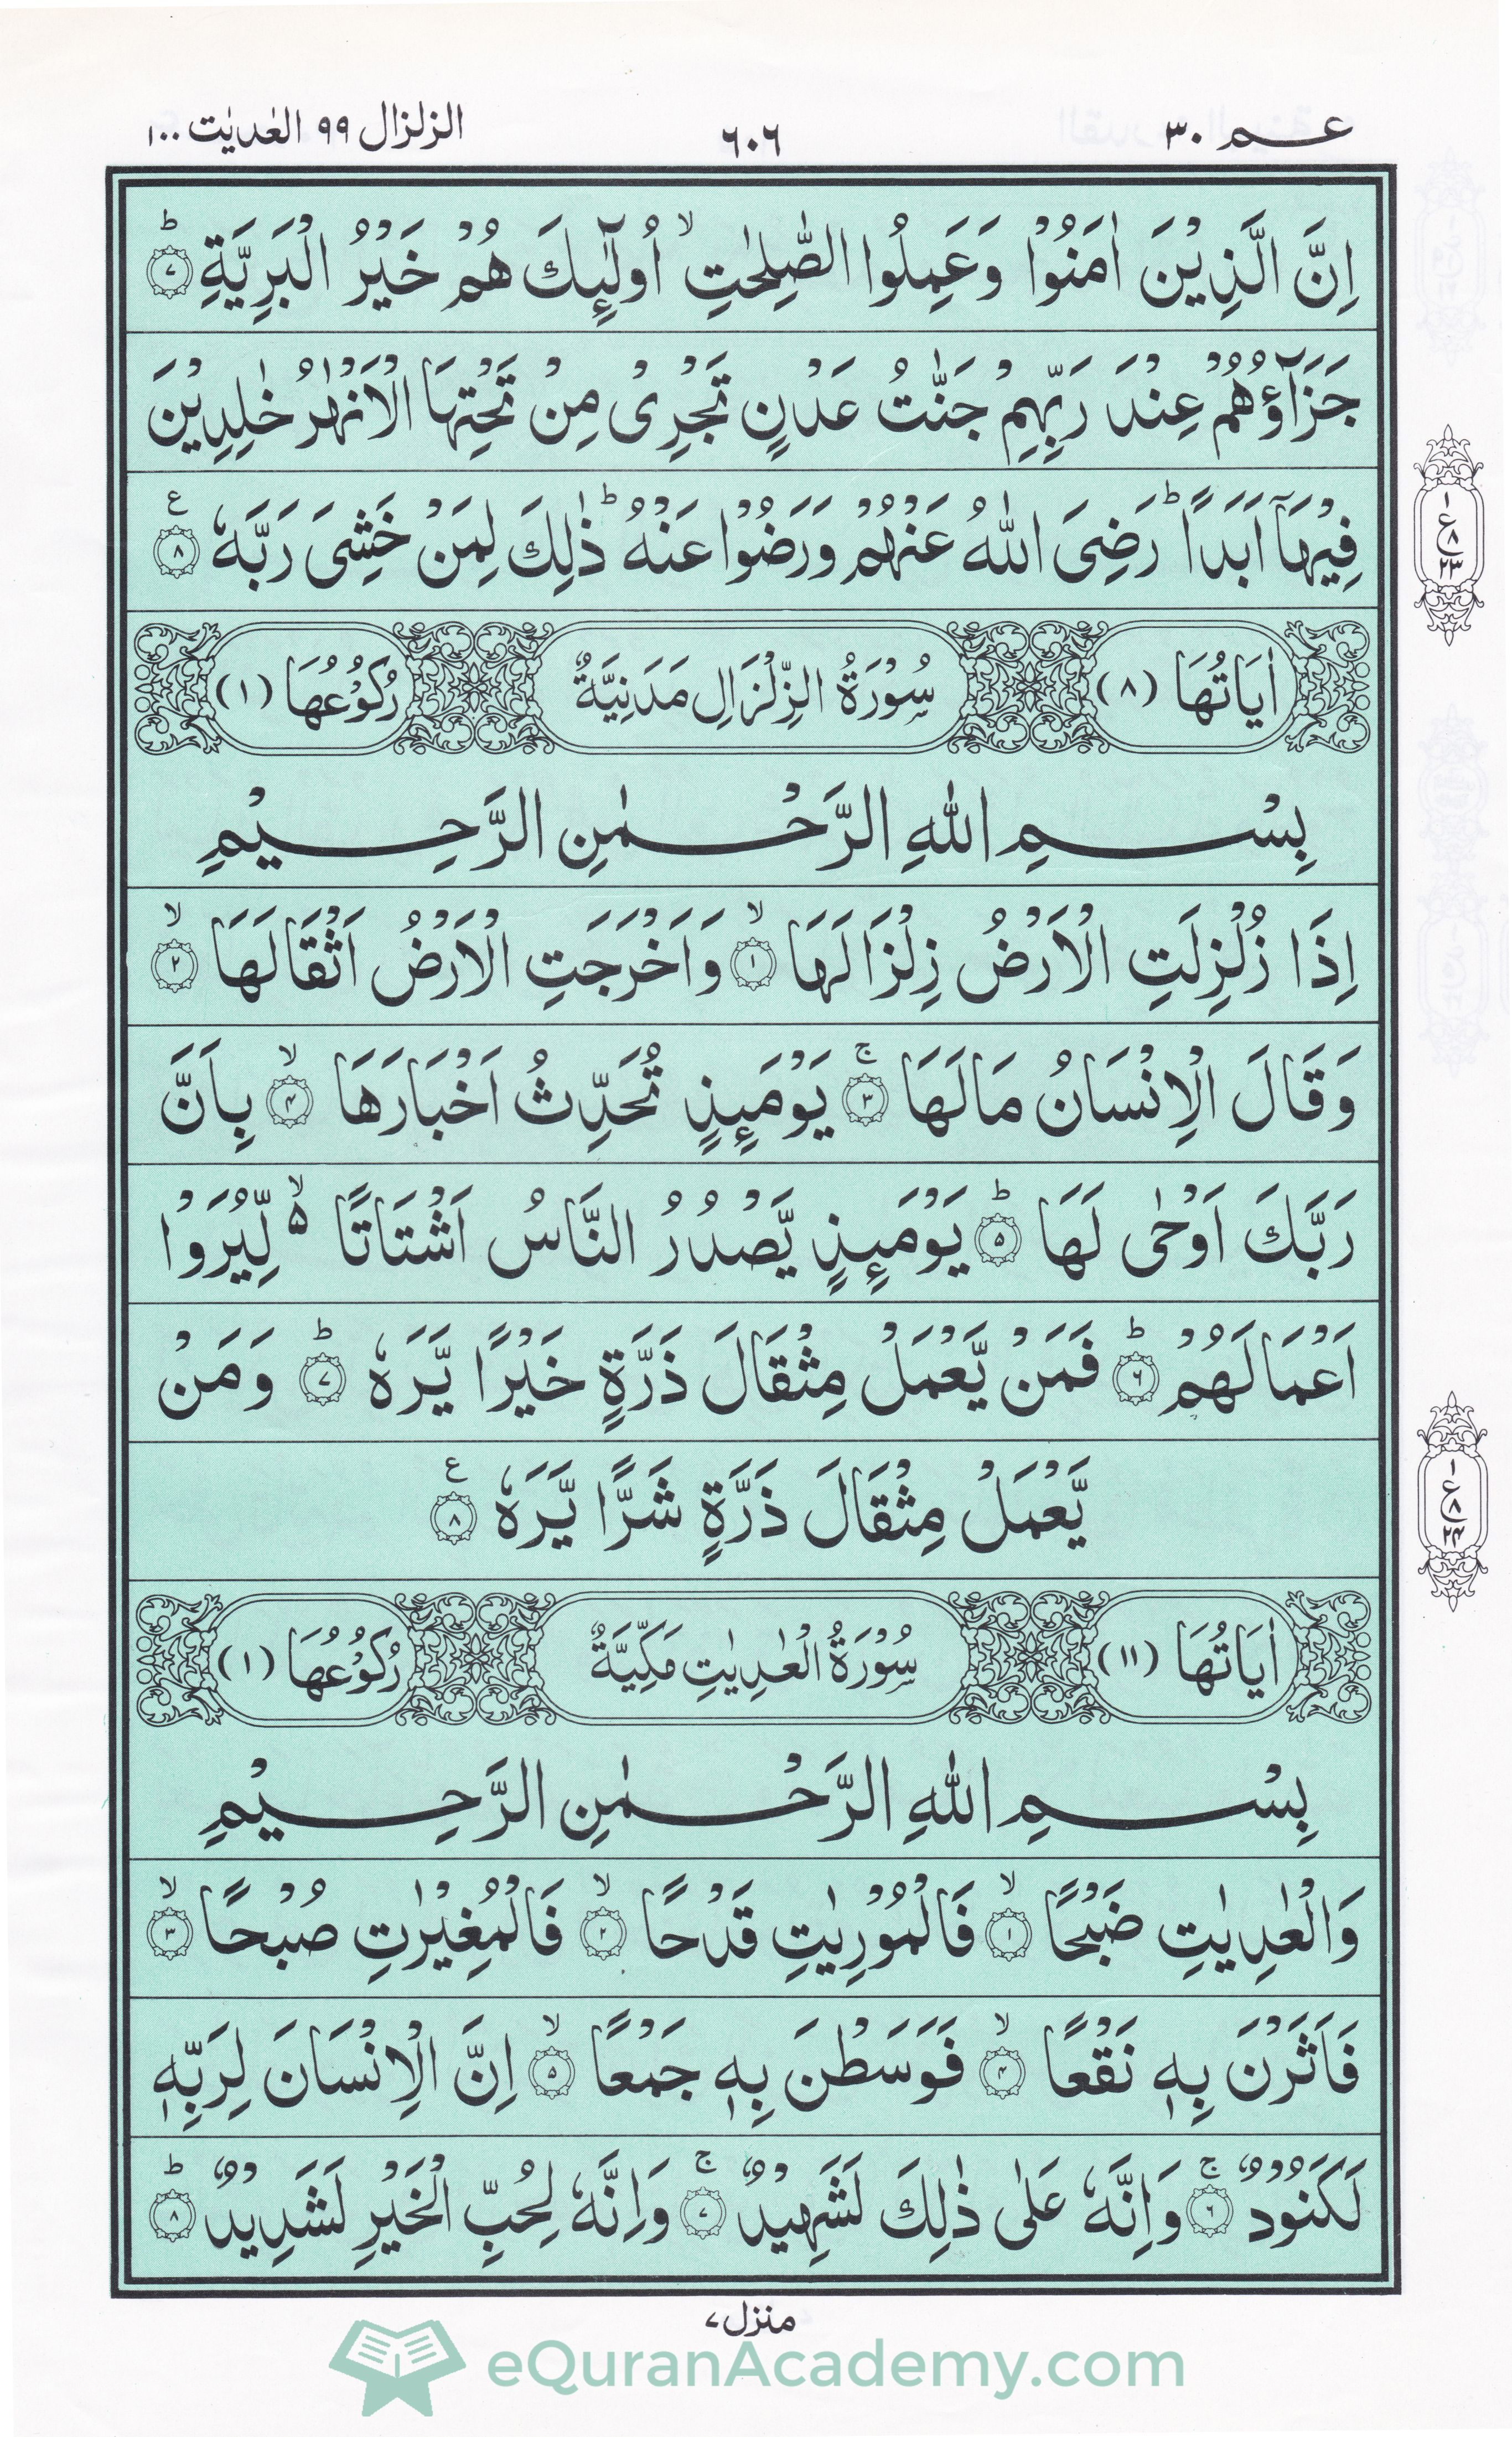 عم ٣٠
٦٠٦
الزلزال ٩٩ العٰديٰت ١٠٠
اِنَّ الَّذِيْنَ اٰمَنُوْا وَعَمِلُوا الصّٰلِحٰتِ ۙ اُولٰٓئِكَ هُمْ خَيْرُ الْبَرِيَّةِ ؕ ۷
جَزَآؤُهُمْ عِنْدَ رَبِّهِمْ جَنّٰتُ عَدْنٍ تَجْرِىْ مِنْ تَحْتِهَا الْاَنْهٰرُ خٰلِدِيْنَ
فِيْهَآ اَبَدًا ؕ رَضِىَ اللّٰهُ عَنْهُمْ وَرَضُوْا عَنْهُ ؕ ذٰلِكَ لِمَنْ خَشِىَ رَبَّهٗ ۸ ع
اٰيَاتُهَا (۸) سُوْرَةُ الزِّلْزَالِ مَدَنِيَّةٌ رُكُوْعُهَا (۱)
بِسْمِ اللّٰهِ الرَّحْمٰنِ الرَّحِيْمِ
اِذَا زُلْزِلَتِ الْاَرْضُ زِلْزَالَهَا ۙ ۱ وَاَخْرَجَتِ الْاَرْضُ اَثْقَالَهَا ۙ ۲
وَقَالَ الْاِنْسَانُ مَالَهَا ۚ ۳ يَوْمَئِذٍ تُحَدِّثُ اَخْبَارَهَا ۙ ۴ بِاَنَّ
رَبَّكَ اَوْحٰى لَهَا ؕ ۵ يَوْمَئِذٍ يَّصْدُرُ النَّاسُ اَشْتَاتًا ۙ ۵ لِّيُرَوْا
اَعْمَالَهُمْ ؕ ۶ فَمَنْ يَّعْمَلْ مِثْقَالَ ذَرَّةٍ خَيْرًا يَّرَهٗ ؕ ۷ وَمَنْ
يَّعْمَلْ مِثْقَالَ ذَرَّةٍ شَرًّا يَّرَهٗ ۸ ع
اٰيَاتُهَا (۱۱) سُوْرَةُ الْعٰدِيٰتِ مَكِّيَّةٌ رُكُوْعُهَا (۱)
بِسْمِ اللّٰهِ الرَّحْمٰنِ الرَّحِيْمِ
وَالْعٰدِيٰتِ ضَبْحًا ۙ ۱ فَالْمُوْرِيٰتِ قَدْحًا ۙ ۲ فَالْمُغِيْرٰتِ صُبْحًا ۙ ۳
فَاَثَرْنَ بِهٖ نَقْعًا ۙ ۴ فَوَسَطْنَ بِهٖ جَمْعًا ۙ ۵ اِنَّ الْاِنْسَانَ لِرَبِّهٖ
لَكَنُوْدٌ ۚ ۶ وَاِنَّهٗ عَلٰى ذٰلِكَ لَشَهِيْدٌ ۚ ۷ وَاِنَّهٗ لِحُبِّ الْخَيْرِ لَشَدِيْدٌ ؕ ۸
۱ ع ۸ ۲۳
۱ ع ۸ ۲۴
منزل ۷
eQuranAcademy.com